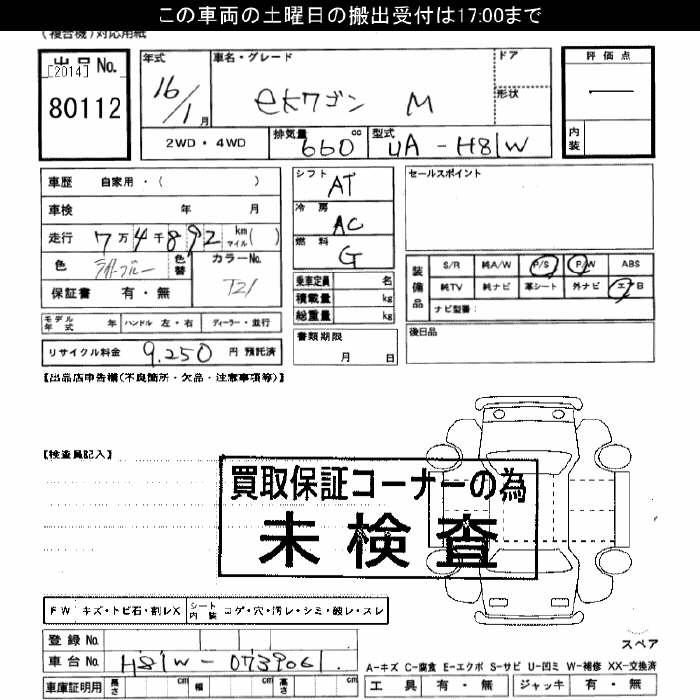 この車両の土曜日の搬出受付は17:00まで
(複合機)対応用紙
出品 No.
[2014]
80112
年式 16/1月
車名・グレード ekワゴン M
ドア
形状
評価点
—
内装
2WD・4WD
排気量 660 cc
型式 UA-H81W
車歴 自家用・( )
車検 年 月
走行 7万4千892 km マイル( )
色 ライトブルー 色替
カラーNo. T21
保証書 有・無
モデル年式 年 ハンドル 左・右 ディーラー・並行
リサイクル料金 9,250 円 預託済
シフト AT
冷房 AC
燃料 G
乗車定員 名
積載量 kg
総重量 kg
書類期限
月 日
セールスポイント
装備品
S/R 純A/W P/S P/W ABS
純TV 純ナビ 革シート 外ナビ エアB
ナビ型番:
後日品
【出品店申告欄(不良箇所・欠品・注意事項等)】
【検査員記入】
買取保証コーナーの為
未検査
FW キズ・トビ石・割レX シート内装 コゲ・穴・汚レ・シミ・破レ・スレ
登録 No.
車台 No. H81W-0739061
車庫証明用 長さ cm 幅 cm 高さ cm
スペア
A-キズ C-腐食 E-エクボ S-サビ U-凹ミ W-補修 XX-交換済
工具 有・無 ジャッキ 有・無